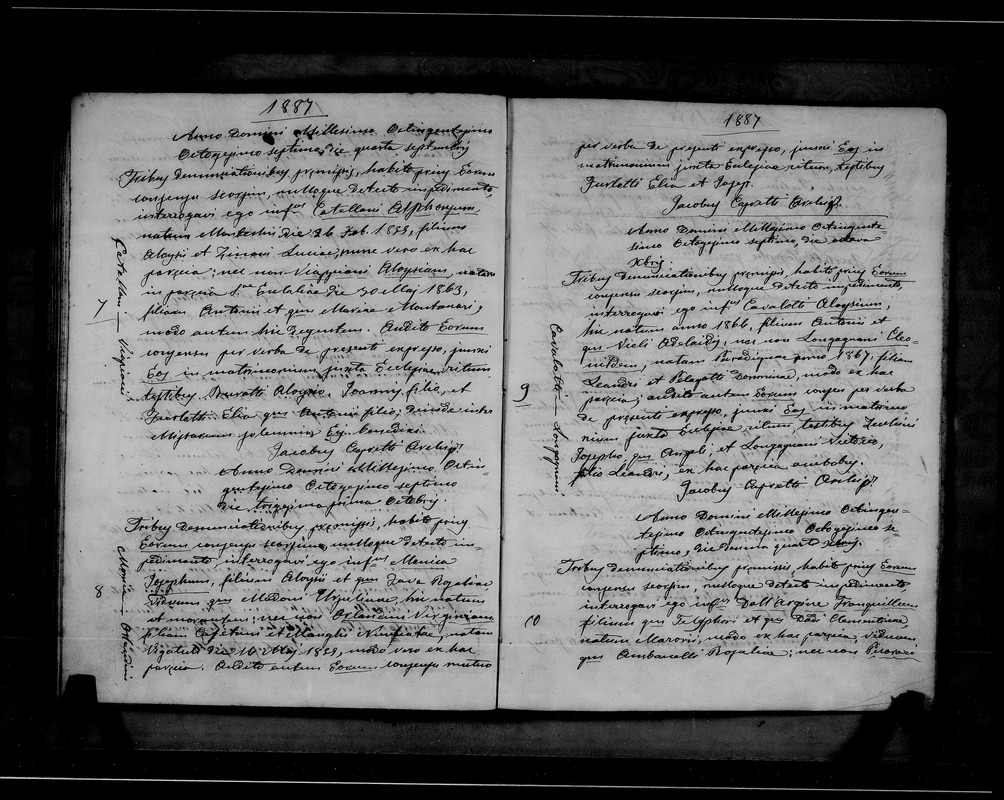 1887
Anno Domini Millesimo Octingentesimo
Octogesimo septimo, die quarta septembris
7
Catellani - Viaggiani
Tribus denunciationibus premissis, habito prius Eorum
consensu seorsim, nulloque detecto impedimento,
interrogavi ego infus Catellani Alphonsum,
natum die 26 Feb. 1855, filium
Aloysi et Luciae, nunc vero ex hac
parœcia; nec non Viaggiani Aloysiam, natam
in parœcia Stae Eulaliae die 30 Maj 1863,
filiam Antonii et qm Mariae Montanari,
modo autem hic degentem. Audito Eorum
consensu per verba de presenti expresso, junxi
Eos in matrimonium juxta Ecclesiae ritum,
testibus Aloysio, Joannis filio, et
Jarlotti Elia qm Antonii filio; deinde inter
Missarum solemnia Eis benedixi.
Jacobus Capretti Archips.
Anno Domini Millesimo Octin-
gentesimo Octogesimo septimo
die trigesima prima Octobris.
8
Monica - Orlandini
Tribus denunciationibus premissis, habito prius
Eorum consensu seorsim, nulloque detecto im-
pedimento, interrogavi ego infus Monica
Josephum, filium Aloysii et qm Zava Rosaliae,
Viduum qm Madoni Ursulinae, hic natum
et morantem; nec non Orlandini Virginiam
filiam Cajetani et natam
die 10 Maj 1859, modo vero ex hac
parœcia. Audito autem Eorum consensu mutuo
1887
per verba de presenti expresso, junxi Eos in
matrimonium juxta Ecclesiae ritum, testibus
Jarlotti Elia et Josepo.
Jacobus Capretti Archips.
Anno Domini Millesimo Octingente-
simo Octogesimo septimo, die octava
Xbris.
9
Cavalotti - Longagnani
Tribus denunciationibus premissis, habito prius Eorum
consensu seorsim, nulloque detecto impedimento,
interrogavi ego infus Cavalotti Aloysium,
hic natum anno 1866, filium Antonii et
qm Violi Adelaidis, nec non Longagnani Cleo-
nildem, natam anno 1867, filiam
Leandri et Pelagatti Domninae, modo ex hac
parœcia; audito autem Eorum consensu per verba
de presenti expresso, junxi Eos in matrimo
nium juxta Ecclesiae ritum, testibus
Josepho, qm Angeli, et Longagnani Victorio,
filio Leandri, ex hac parœcia ambobus.
Jacobus Capretti Archips.
Anno Domini Millesimo Octingen-
tesimo Octogesimo se
ptimo, die decima quarta Xbris.
10
Tribus denunciationibus premissis, habito prius Eorum
consensu seorsim, nulloque detecto impedimento,
interrogavi ego infus Dall'Argine Tranquillum
filium qm Telesphori et qm Dodi Clementinae,
natum modo ex hac parœcia, viduum
qm Ambanelli Rosaliae; nec non